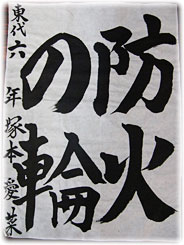 防火
の輪
東代六年塚本愛菜